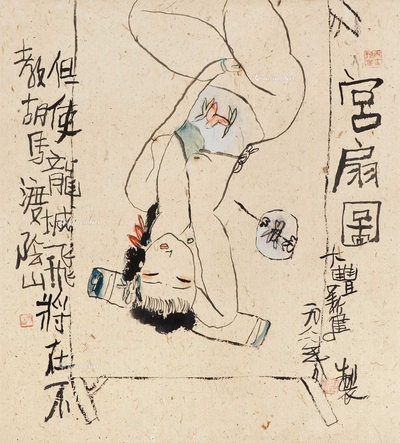 宮扇圖
大豐新建
製
但使龍城飛將在不
教胡馬渡陰山